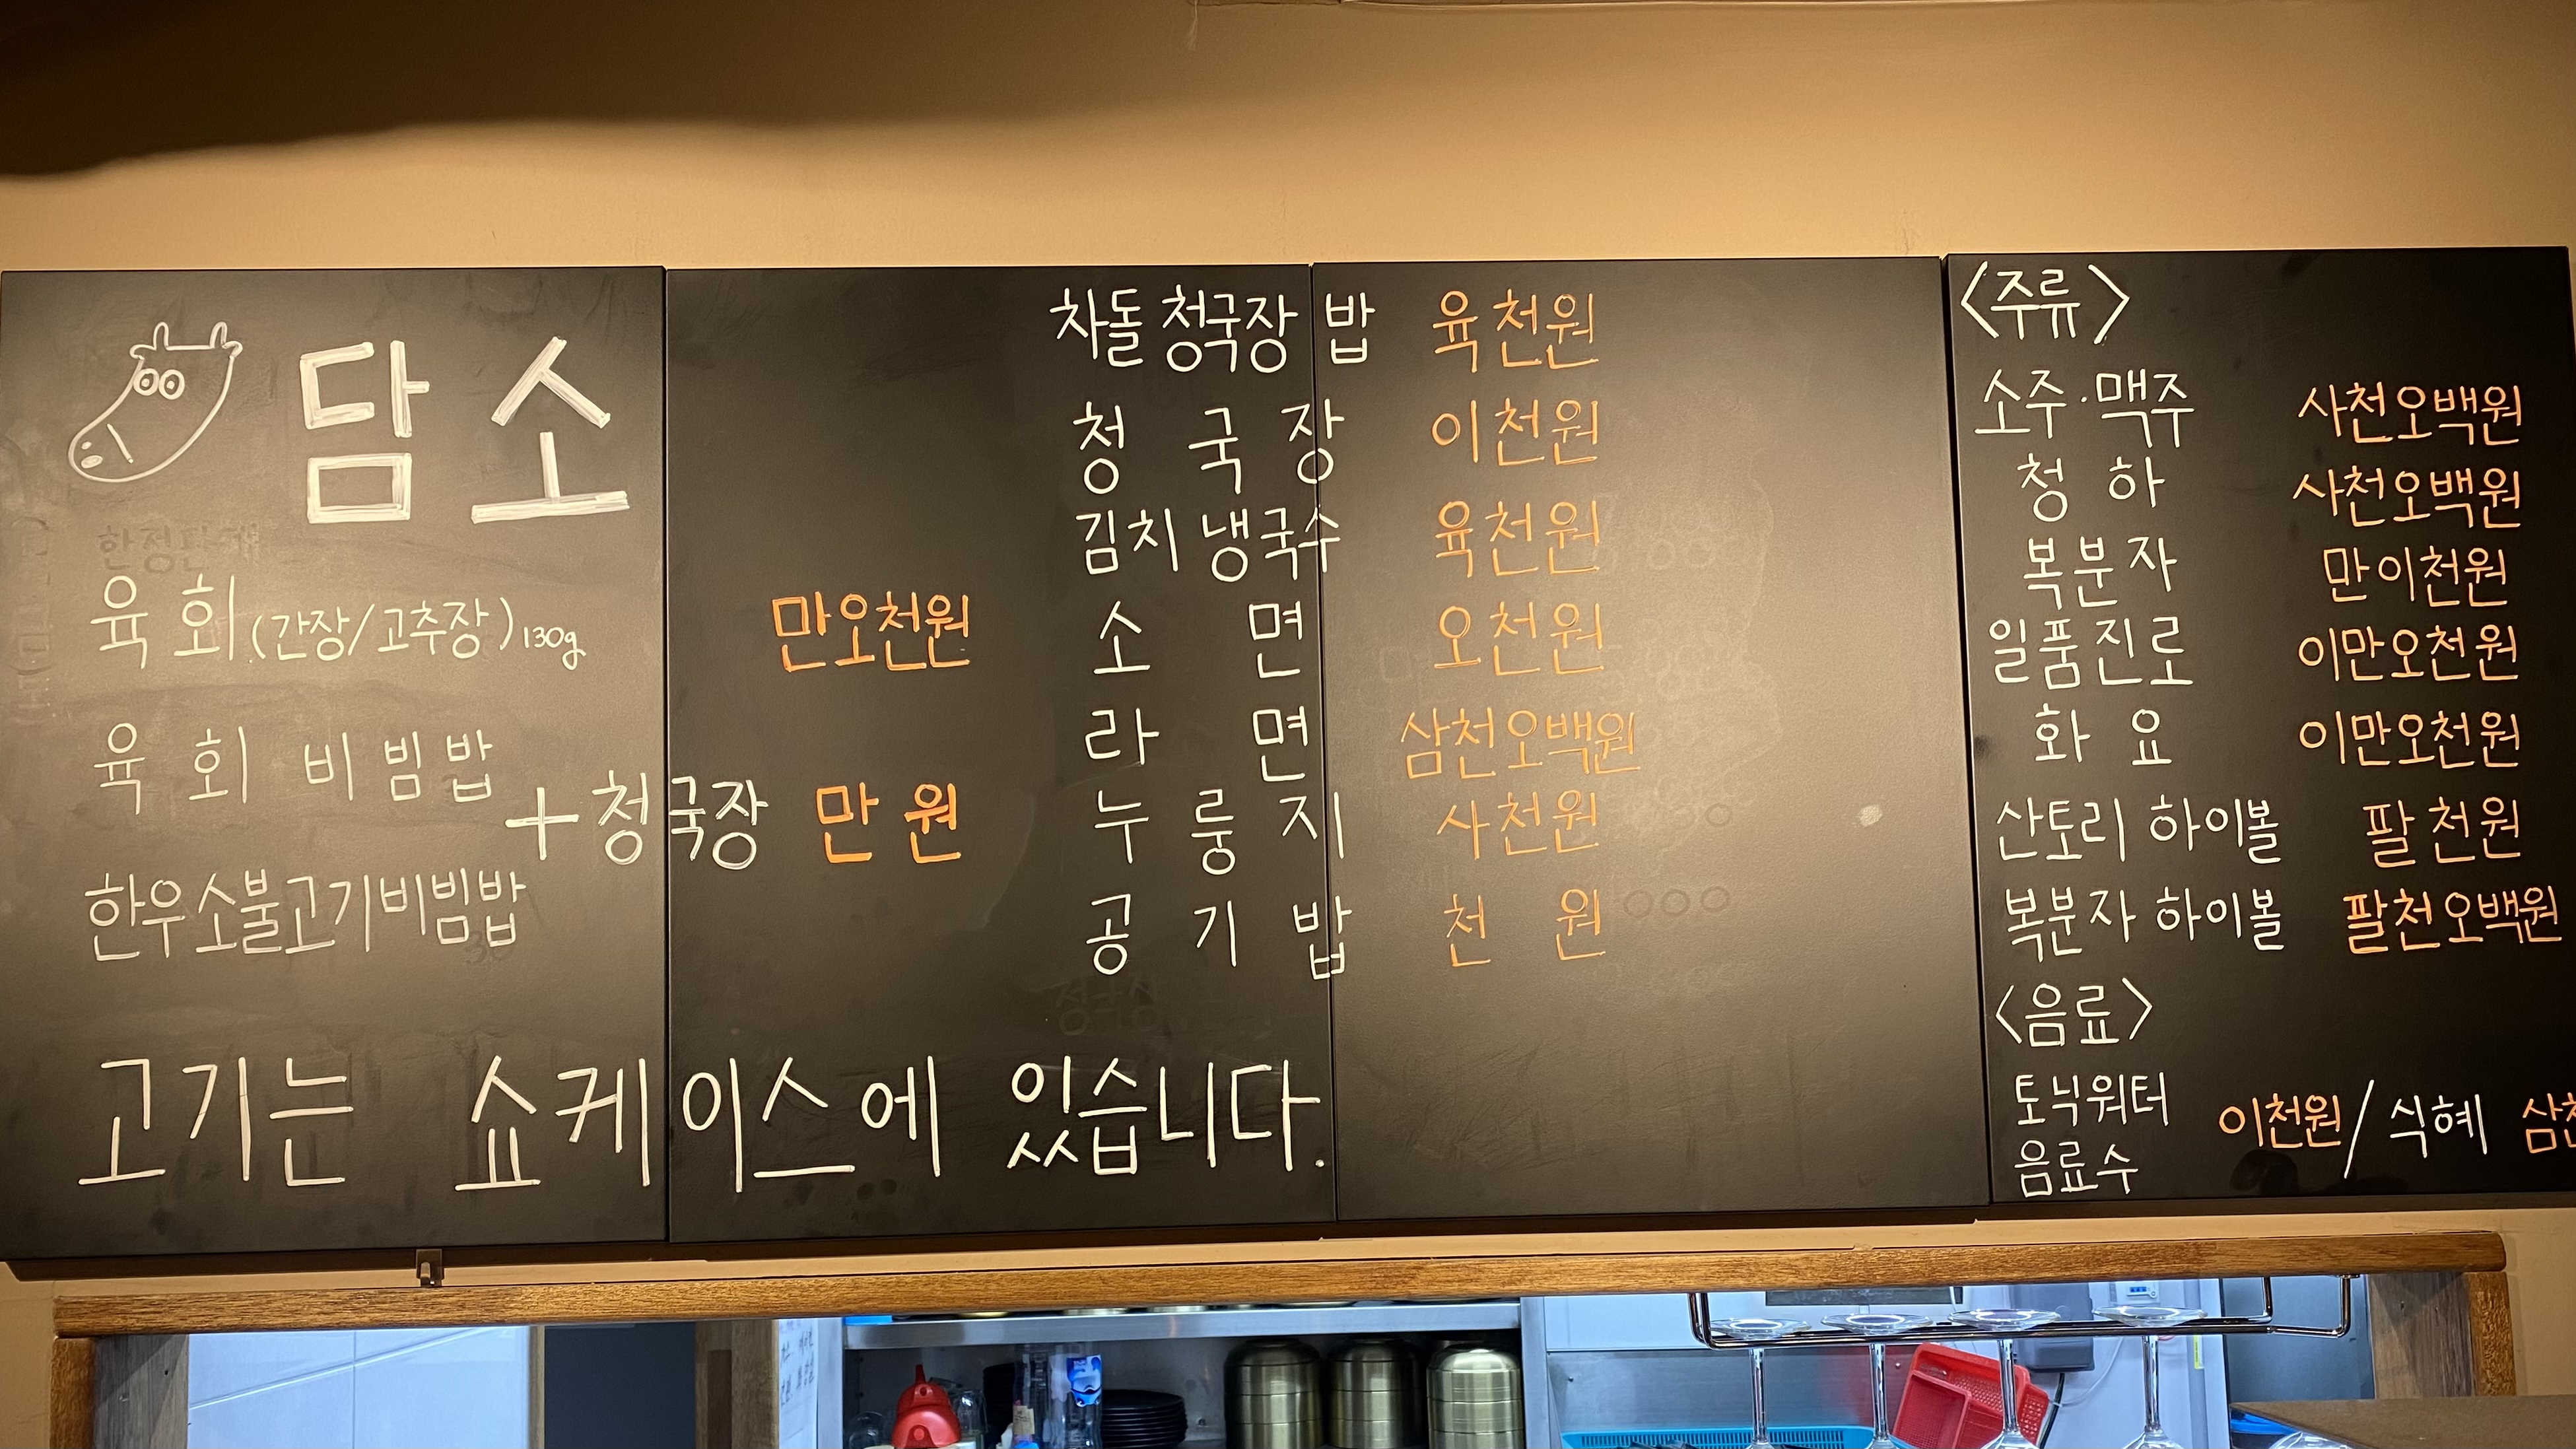 담소
육회(간장/고추장)130g 만오천원
육회비빔밥
+청국장 만원
한우소불고기비빔밥
고기는 쇼케이스에 있습니다.
차돌청국장밥 육천원
청국장 이천원
김치냉국수 육천원
소면 오천원
라면 삼천오백원
누룽지 사천원
공기밥 천원
<주류>
소주·맥주 사천오백원
청하 사천오백원
복분자 만이천원
일품진로 이만오천원
화요 이만오천원
산토리 하이볼 팔천원
복분자 하이볼 팔천오백원
<음료>
토닉워터
음료수 이천원/식혜